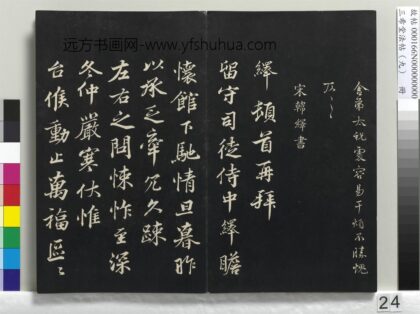 远方书画网-www.yfshuhua.com
故帖 000166N000000000
三希堂法帖（九） 册
舍弟太祝震容易干煩不勝愧
及之
宋韓繹書
繹頓首再拜
留守司徒侍中繹瞻
懷館下馳情旦暮昨
以承乏牽冗久疎
左右之問悚怍至深
冬仲嚴寒伏惟
台候動止萬福區區
24